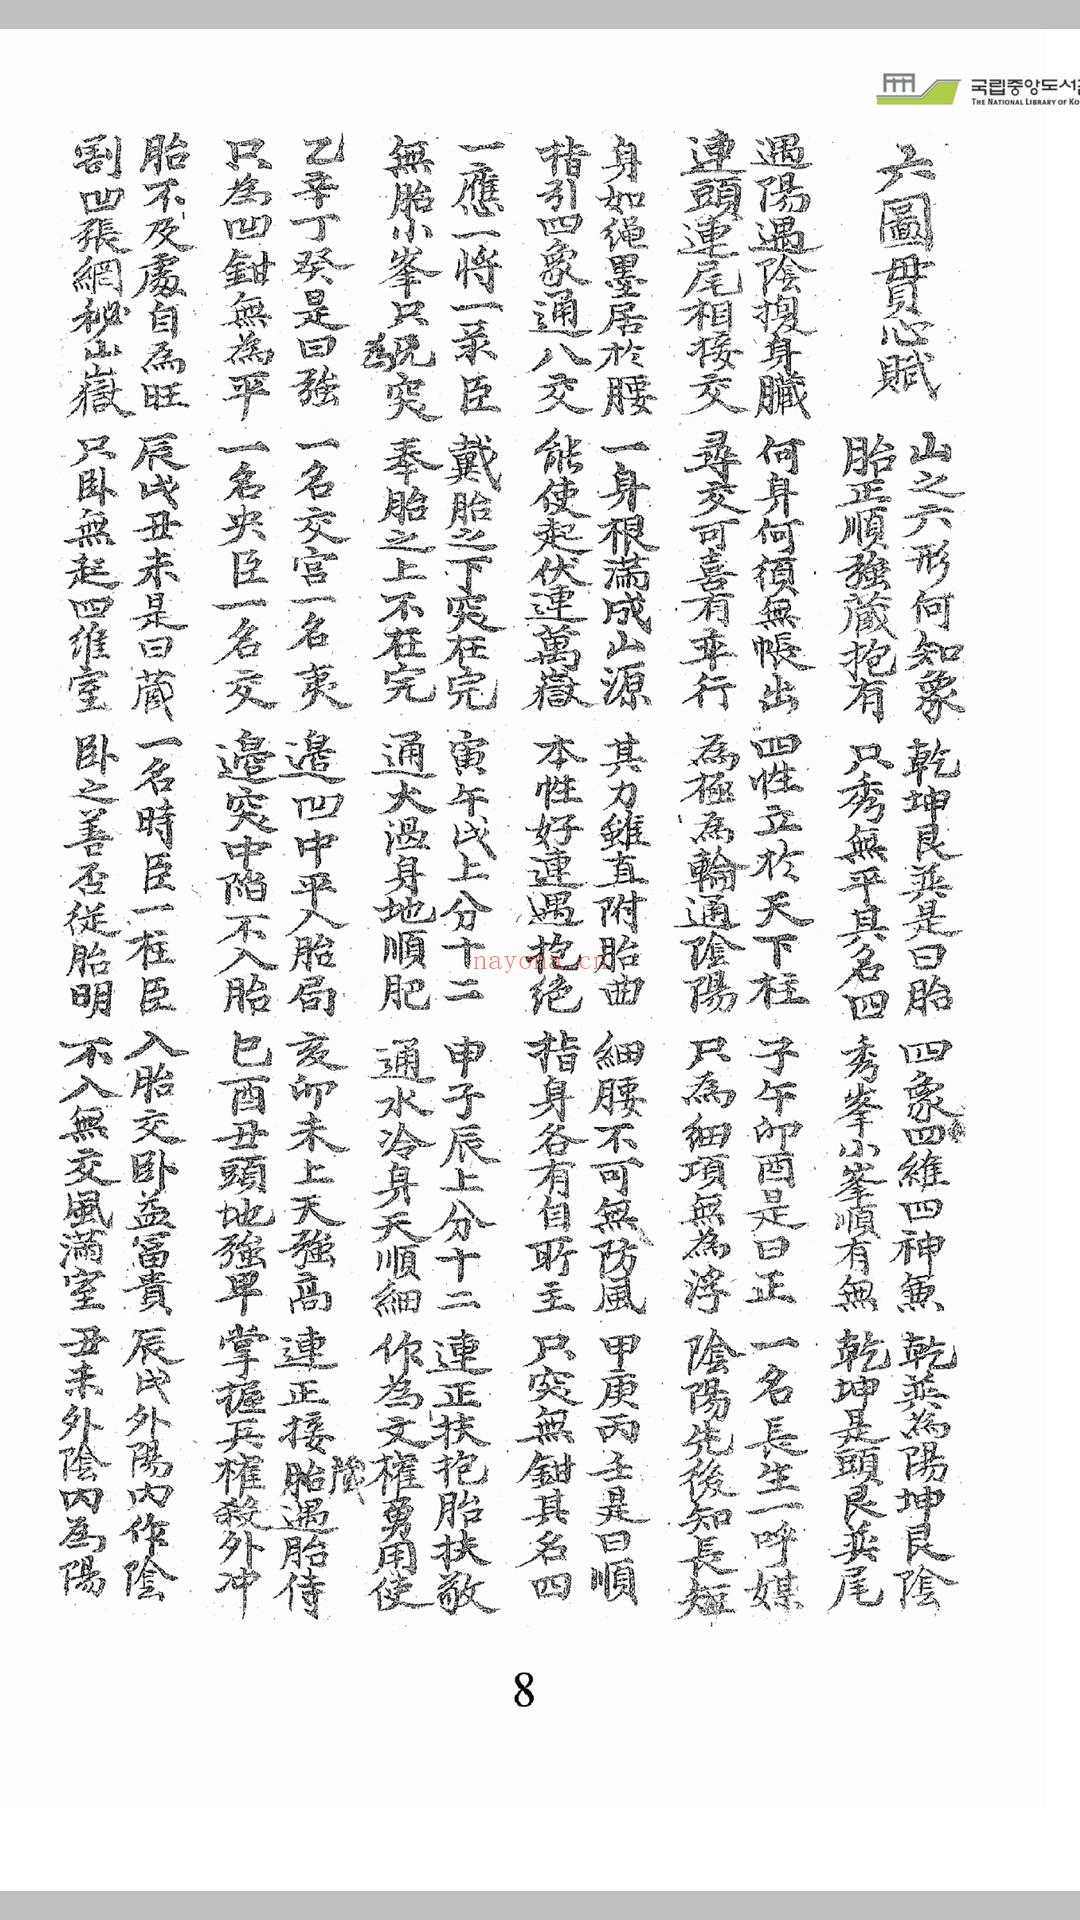 국립중앙도서관
THE NATIONAL LIBRARY OF KO
六圖貫心賦
山之六形何知象 乾坤艮巽是曰胎 四象四維四神兼 乾巽為陽坤艮陰
胎正順強藏抱有 只秀無平其名四 秀峯小峯順有無 乾坤是頭艮巽尾
遇陽遇陰換身臟 何身何須無帳出 四性立於天下柱 子午卯酉是曰正 一名長生一呼媒
連頭連尾相接交 尋交可喜有率行 為極為輪通陰陽 只為細項無為浮 陰陽先後知長短
身如繩墨居於腰 一身根滿成山源 其力雖直附胎曲 細腰不可無防風 甲庚丙壬是曰順
指引四象通八交 能使起伏連萬嶽 本性好連遇抱絶 指身各有自所主 只突無鉗其名四
一應一將一录臣 戴胎之下突在完 寅午戌上分十二 申子辰上分十二 連正扶抱胎扶敬
無胎小峯只為突 奉胎之上不在完 通火溫身地順肥 通水冷身天順細 你為文權勇用使
乙辛丁癸是曰強 一名交宮一名夷 邉凹中平入胎局 亥卯未上天強高 連正接藏遇胎侍
只為凹鉗無為平 一名央臣一名交 邉突中陷不入胎 巳酉丑頭地強卑 掌握兵權殺外冲
胎不及處自為旺 辰戌丑未是曰藏 一名時臣一柱臣 入胎交卧益富貴 辰戌外陽内作陰
割凹張網秘山嶽 只卧無起四維室 卧之善否從胎明 不入無交風滿室 丑未外陰内為陽
nayona.cn
8